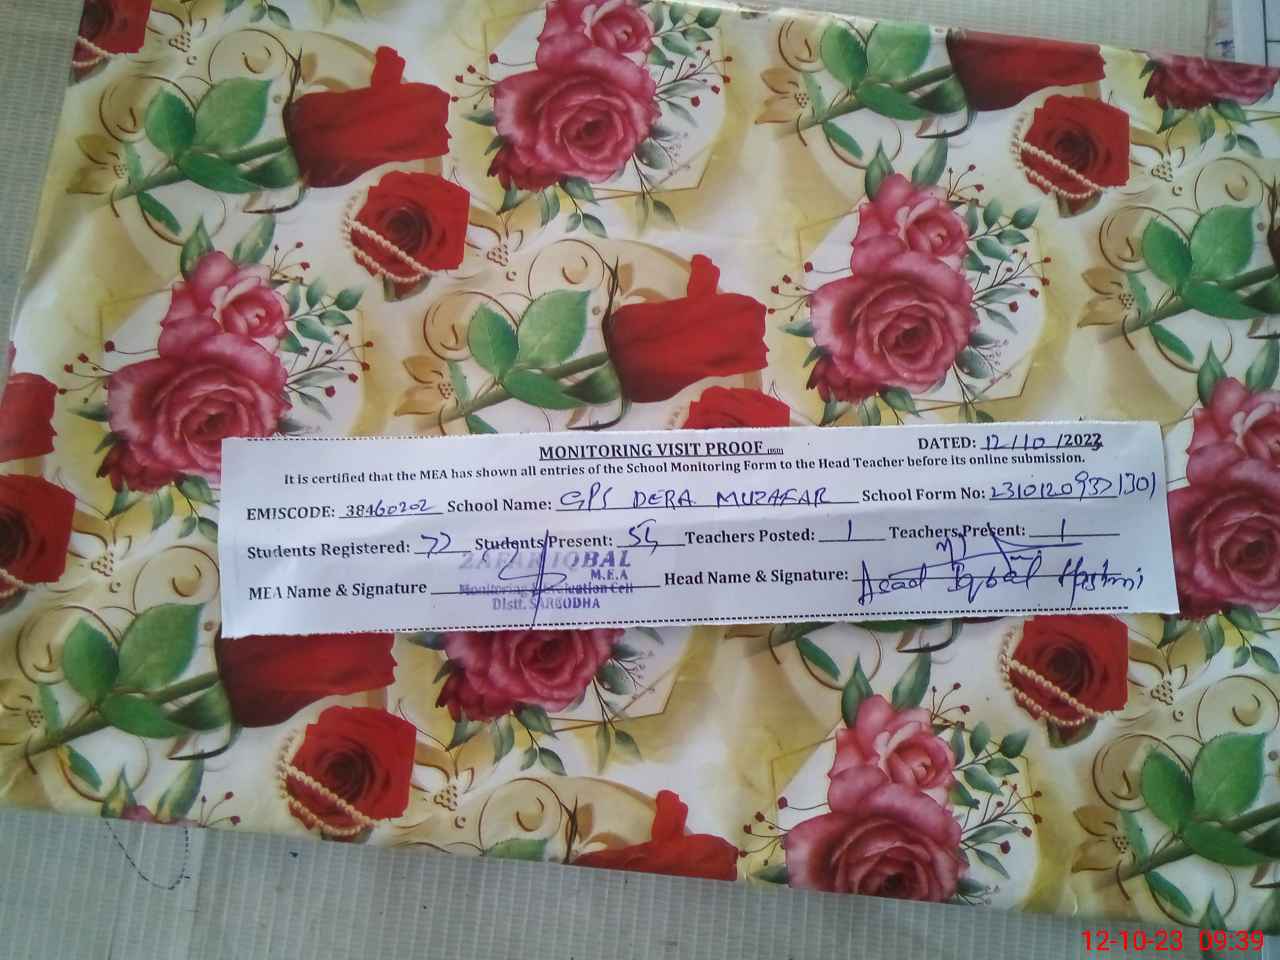 MONITORING VISIT PROOF
DATED: 12/10/2023
It is certified that the MEA has shown all entries of the School Monitoring Form to the Head Teacher before its online submission.
EMISCODE: 38460202 School Name: GPS DERA MUZAFAR School Form No:
Students Registered: 72 Students Present: Teachers Posted: 1 Teachers Present: 1
ZAFAR IQBAL
M.E.A
MEA Name & Signature Head Name & Signature: Asad Iqbal Hashmi
Monitoring & Evaluation Cell
Distt. SARGODHA
12-10-23 09:39